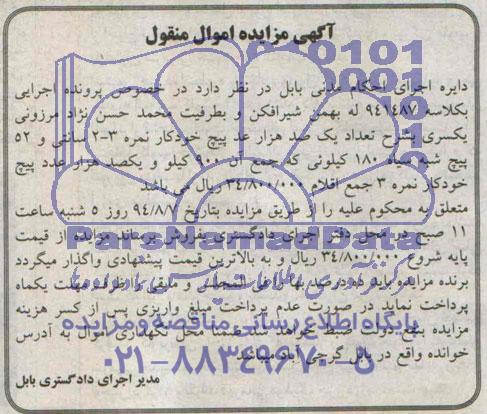 آگهی مزایده اموال منقول
دایره اجرای احکام مدنی بابل در نظر دارد در خصوص پرونده اجرایی
بکلاسه ۹۴۱۴۸۷ له بهمن شیرافکن و بطرفیت محمد حسن نژاد مرزونی
یکسری بشرح تعداد یک صد هزار عدد پیچ خودکار نمره ۳-۲ سانتی و ۵۲
پیچ شبه سیاه ۱۸۰ کیلوئی که جمع آن ۹۰۰ کیلو و یکصد هزار عدد پیچ
خودکار نمره ۳ جمع اقلام ۳۴/۸۰۰/۰۰۰ ریال می باشد
متعلق به محکوم علیه را از طریق مزایده بتاریخ ۹۴/۸/۷ روز ۵ شنبه ساعت
۱۱ صبح در محل دفتر اجرای دادگستری بفروش برساند مزایده از قیمت
پایه شروع ۳۴/۸۰۰/۰۰۰ ریال و به بالاترین قیمت پیشنهادی واگذار میگردد
برنده مزایده باید ده درصد بها را فی المجلس و مابقی را ظرف مهلت یکماه
پرداخت نماید در صورت عدم پرداخت مبلغ واریزی پس از کسر هزینه
مزایده بنفع دولت ضبط خواهد شد ضمنا محل نگهداری اموال به آدرس
خوانده واقع در بابل گرجی آباد میباشد
مدیر اجرای دادگستری بابل
ParsNamadData
پایگاه اطلاع رسانی مناقصه و مزایده
۰۲۱-۸۸۳۴۹۶۷۰-۵